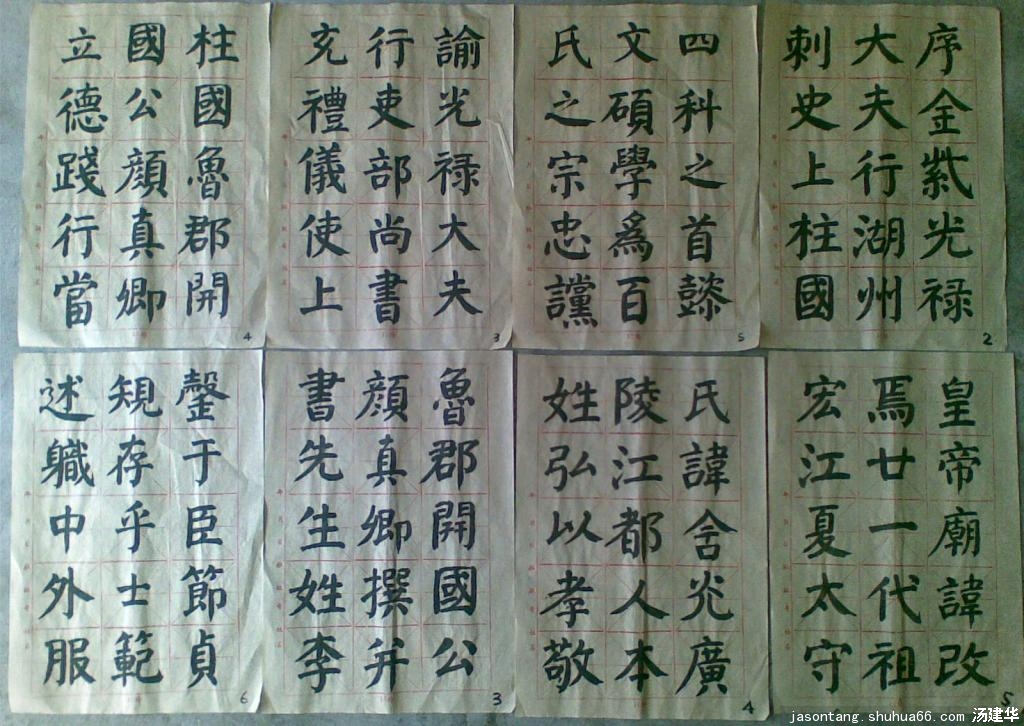 序金紫光禄
大夫行湖州
刺史上柱國
2
四科之首懿
文碩學爲百
氏之宗忠讜
5
諭光禄大夫
行吏部尚書
充禮儀使上
3
柱國魯郡開
國公顔真卿
立德踐行當
4
皇帝廟諱改
焉廿一代祖
宏江夏太守
5
氏諱含光廣
陵江都人本
姓弘以孝敬
4
魯郡開國公
顔真卿撰并
書先生姓李
3
罄于臣節貞
規存乎士範
述職中外服
6
jasontang.shuhua66.com 汤建华